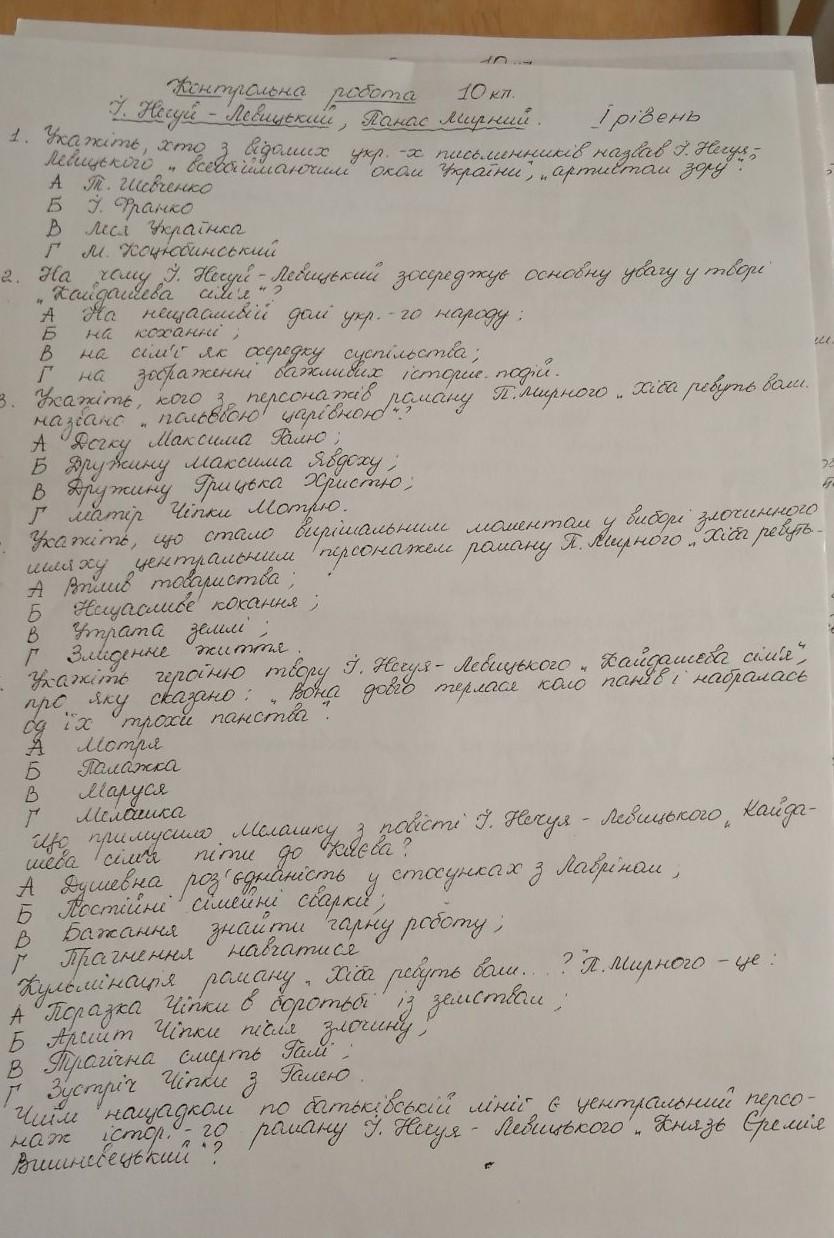 Контрольна робота 10 кл.
І. Нечуй - Левицький, Панас Мирний. І рівень
1. Укажіть, хто з відомих укр.-х письменників назвав І. Нечуя-
Левицького „всеобіймаючим оком України", „артистом зору".
А Т. Шевченко
Б І. Франко
В Леся Українка
Г М. Коцюбинський
2. На чому І. Нечуй - Левицький зосереджує основну увагу у творі
„Кайдашева сім'я"?
А На нещасливій долі укр.-го народу;
Б на коханні;
В на сім'ї як осередку суспільства;
Г на зображенні важливих історич. подій.
3. Укажіть, кого з персонажів роману П. Мирного „Хіба ревуть воли..
названо „польовою царівною"?
А Дочку Максима Галю;
Б Дружину Максима Явдоху;
В Дружину Грицька Христю;
Г матір Чіпки Мотрю.
Укажіть, що стало вирішальним моментом у виборі злочинного
шляху центральним персонажем роману П. Мирного „Хіба ревуть..
А Вплив товариства;
Б Нещасливе кохання;
В Утрата землі;
Г Злиденне життя.
Укажіть героїню твору І. Нечуя - Левицького „Кайдашева сім'я",
про яку сказано: „Вона довго терлася коло панів і набралась
од їх трохи панства".
А Мотря
Б Палажка
В Маруся
Г Мелашка
Що примусило Мелашку з повісті І. Нечуя - Левицького „Кайда-
шева сім'я піти до Києва?
А Душевна роз'єднаність у стосунках з Лавріном;
Б Постійні сімейні сварки;
В Бажання знайти гарну роботу;
Г Прагнення навчатися
Кульмінація роману „Хіба ревуть воли...?" П. Мирного - це:
А Поразка Чіпки в боротьбі із земством;
Б Арешт Чіпки після злочину;
В Трагічна смерть Галі;
Г Зустріч Чіпки з Галею.
Чиїм нащадком по батьківській лінії є центральний персо-
наж істор.-го роману І. Нечуя - Левицького „Князь Єремія
Вишневецький"?